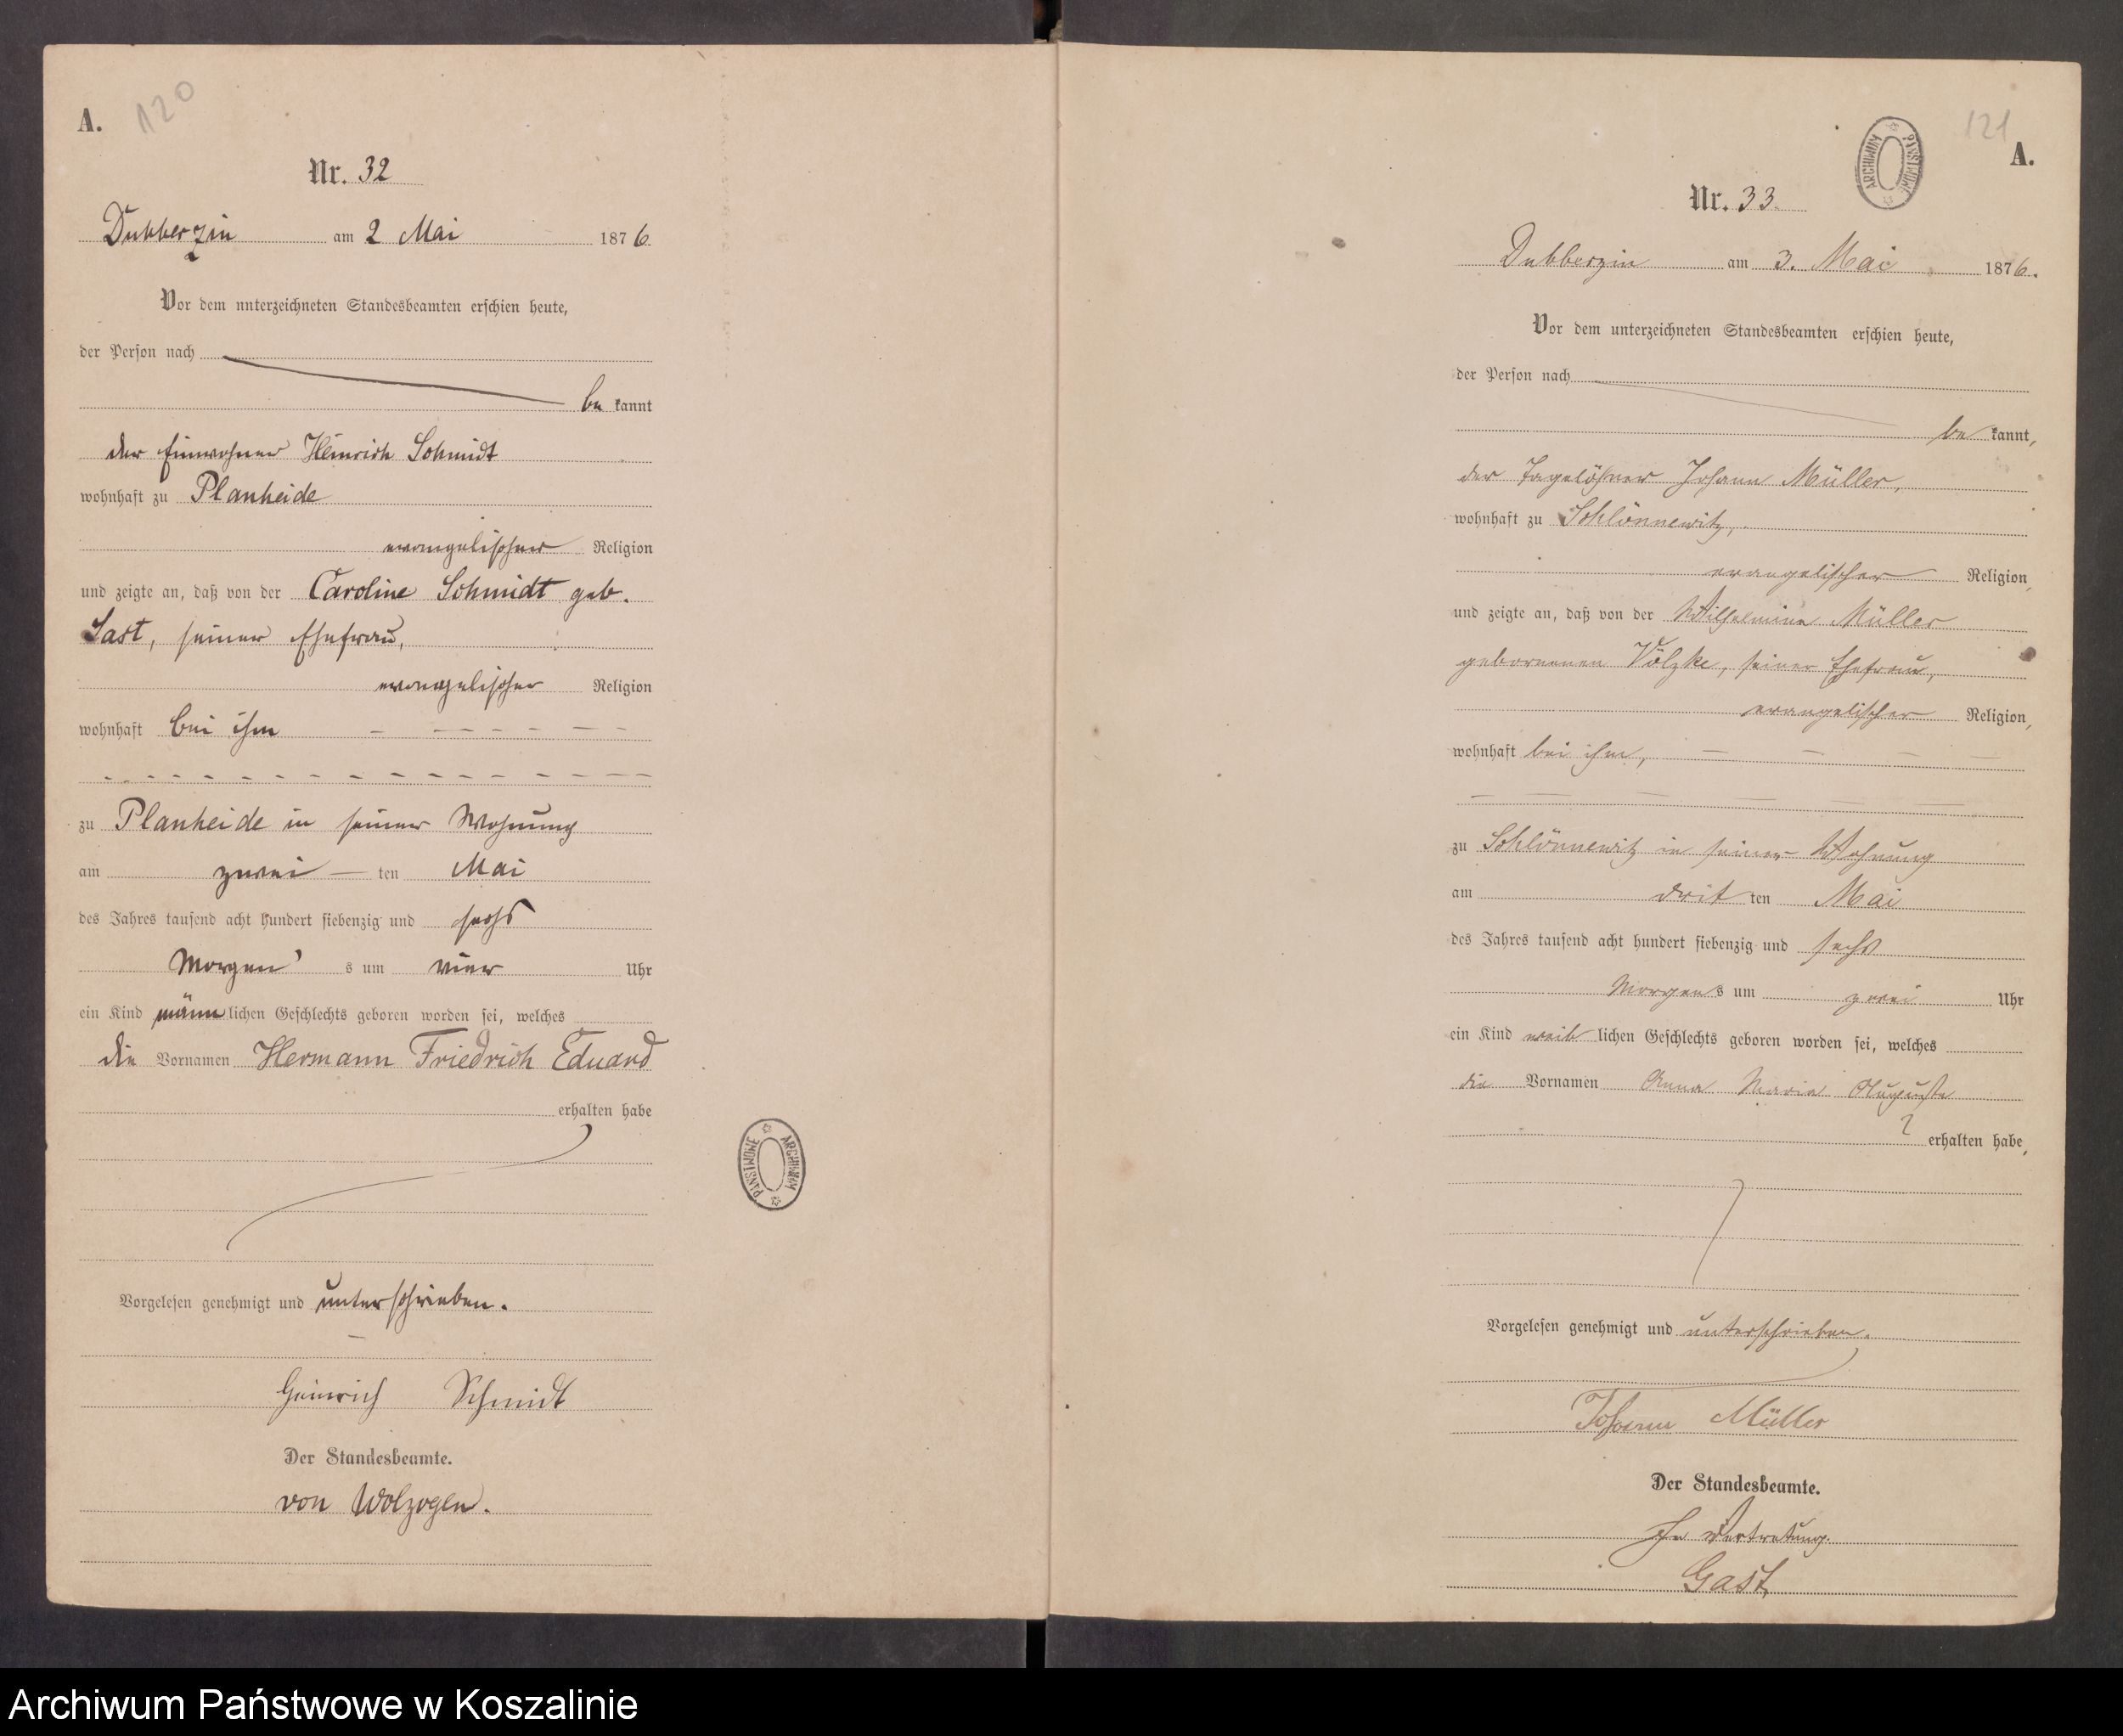 A. 120
Nr. 32
Dubberzin am 2 Mai 1876
Vor dem unterzeichneten Standesbeamten erschien heute,
der Person nach
be kannt
der Einwohner Heinrich Schmidt
wohnhaft zu Planheide
evangelischer Religion
und zeigte an, daß von der Caroline Schmidt geb.
Last, seiner Ehefrau,
evangelischer Religion
wohnhaft bei ihm - - - - - - -
- - - - - - - - - - - - - - -
zu Planheide in seiner Wohnung
am zwei — ten Mai
des Jahres tausend acht hundert siebenzig und sechs
Morgen s um vier Uhr
ein Kind männlichen Geschlechts geboren worden sei, welches
die Vornamen Hermann Friedrich Eduard
erhalten habe
Vorgelesen genehmigt und unterschrieben.
Heinrich Schmidt
Der Standesbeamte.
von Wolzogen.
PAŃSTWOWE ARCHIWUM
121
A.
ARCHIWUM PAŃSTWOWE
Nr. 33.
Dubberzin am 3. Mai 1876.
Vor dem unterzeichneten Standesbeamten erschien heute,
der Person nach
be kannt,
der Tagelöhner Johann Müller,
wohnhaft zu Schlönnewitz,
evangelischer Religion,
und zeigte an, daß von der Wilhelmine Müller
geborenen Völzke, seiner Ehefrau,
evangelischer Religion,
wohnhaft bei ihm, — — — —
— — — — — —
zu Schlönnewitz in seiner Wohnung
am drit ten Mai
des Jahres tausend acht hundert siebenzig und sechs
Morgens um zwei Uhr
ein Kind weiblichen Geschlechts geboren worden sei, welches
die Vornamen Anna Maria Auguste
erhalten habe,
Vorgelesen genehmigt und unterschrieben.
Johann Müller
Der Standesbeamte.
In Vertretung.
Gast
Archiwum Państwowe w Koszalinie